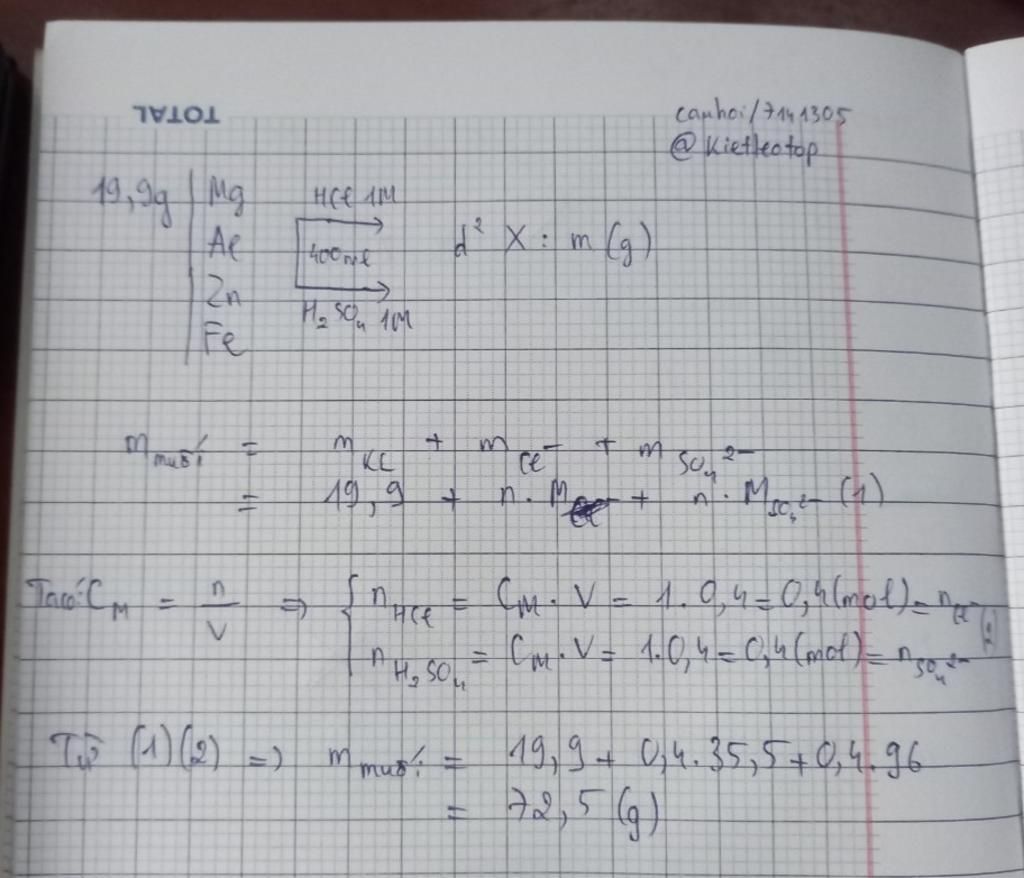 TOTAL
cauhoi/7141305
@Kietleotop
19,9g Mg HCl 1M
Al 400ml d² X : m (g)
Zn
H₂SO₄ 1M
Fe
m muối = m KL + m Cl⁻ + m SO₄²⁻
= 19,9 + n . M Cl⁻ + n . M SO₄²⁻ (1)
Ta có: C_M = n/V => { n HCl = C_M . V = 1 . 0,4 = 0,4 (mol) = n Cl⁻ (2)
n H₂SO₄ = C_M . V = 1.0,4 = 0,4 (mol) = n SO₄²⁻
Từ (1)(2) => m muối = 19,9 + 0,4.35,5 + 0,4.96
= 72,5 (g)